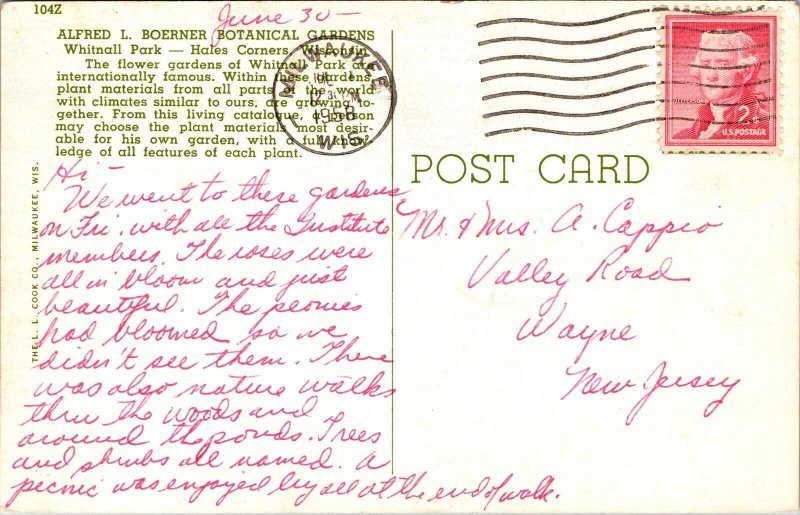 104Z
June 30 —
ALFRED L. BOERNER BOTANICAL GARDENS
Whitnall Park — Hales Corners, Wisconsin
The flower gardens of Whitnall Park are
internationally famous. Within these gardens,
plant materials from all parts of the world
with climates similar to ours, are growing to-
gether. From this living catalogue, a person
may choose the plant materials most desir-
able for his own garden, with a full know-
ledge of all features of each plant.
MILWAUKEE
1958
WIS.
2¢
U.S. POSTAGE
POST CARD
THE L. L. COOK CO., MILWAUKEE, WIS.
Hi —
We went to these gardens
on Fri. with all the Institute
members. The roses were
all in bloom and just
beautiful. The peonies
had bloomed so we
didn't see them. There
was also nature walks
thru the woods and
around the ponds. Trees
and shrubs all named. A
picnic was enjoyed by all at the end of walk.
Mr. & Mrs. A. Cappio
Valley Road
Wayne
New Jersey